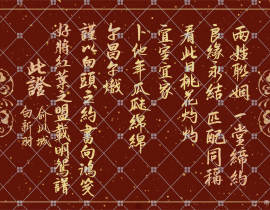 兩姓聯姻 一堂締約
良緣永結 匹配同稱
看此日桃花灼灼
宜室宜家
卜他年瓜瓞綿綿
爾昌爾熾
謹以白頭之約書向鴻箋
好將紅葉之盟載明鴛譜
此證
俞以城
向新羽